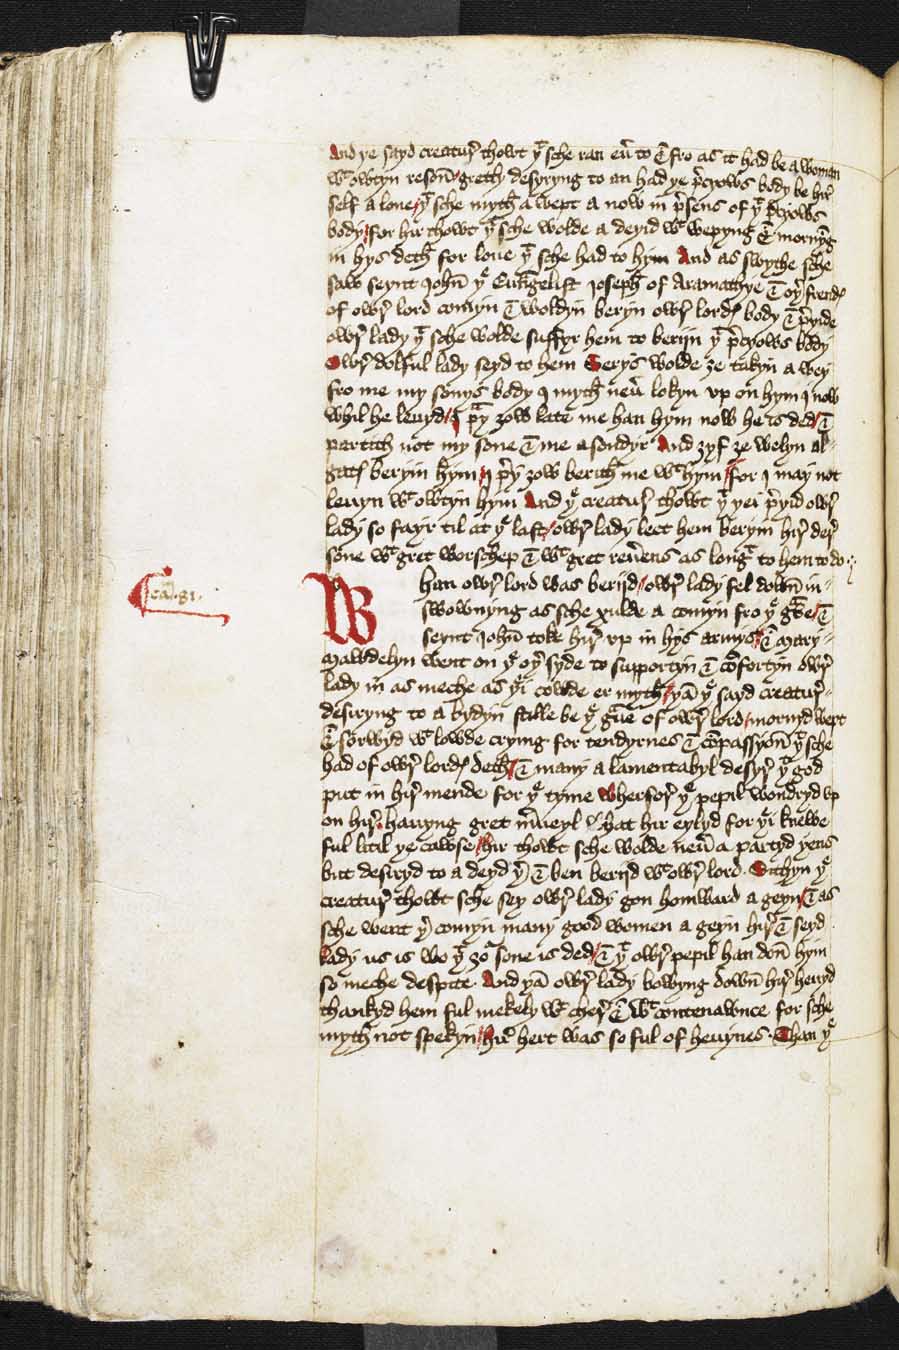 And ye sayd creatur thowt yᵗ sche ran eu̅ to & fro as it had be a woman
wᵗ owtyn reson / gretly desyryng to an had ye p̅cyows body be hir
self a lone / yᵗ sche myth a wept a now in p̅sens of yᵗ p̅cyows
body / for hir thowt yᵗ sche wolde a deyid wᵗ wepyng & morny̅g
in hys deth for loue yᵗ sche had to hym And as swythe sche
saw seynt Joh̅n yᵉ Euu̅ngelist Joseph of Aramathye & oyʳ frendꝭ
of owr lord comyn & woldyn beryin owr lordꝭ body & p̅yide
owr lady yᵗ sche wolde suffyr hem to berijn yᵗ p̅cyows body
Owr dolful lady seyd to hem Serys wolde ȝe takyn a wey
fro me my sonys body I myth neu̅ lokyn vp on hym I now
whil he leuyd / I pᵃy ȝow late me han hym now he is ded / &
partith not my sone & me asondyr And ȝyf ȝe welyn al-
gatꝭ beryin hym / I p̅y ȝow berith me wᵗ hym / for I may not
leuyn wᵗ owtyn hym And yᵉ creatur thowt yᵗ yei p̅yid owr
lady so fayr til at yᵉ last / owr lady leet hem beryin hir der
sone wᵗ gret worschep & wᵗ gret reu̅ens as longᵗ to hem to do
Ca̅ . 81 .
Whan owr lord was berijd / owr lady fel down in-
swownyng as sche xulde a comyn fro yᵉ gᵃue / &
seynt Joh̅n toke hir vp in hys armys / & Mary-
Mawdelyn went on yᵉ oyʳ syde to supportyn & co̅fortyn owr
lady in as meche as yᵉi cowde er myth / ya̅ yᵉ sayd creatur-
desiryng to a bydyn stille be yᵉ gᵃue of owr lord / mornyd wept
& sorwyd wᵗ lowde crying for tendyrnes & co̅passyon yᵗ sche
had of owr lordꝭ deth / & many a lamentabyl desyr yᵗ god
put in hir mende for yᵉ tyme wherfor yᵉ pepil wondryd vp
on hir . hauyng gret m̅ueyl what hir eylyd for yᵉi knewe
ful litil ye cawse / hir thowt sche wolde neu̅ a partyd yens
but desiryd to a deyd yʳ & ben berijd wᵗ owr lord . Sithyn yᵉ
creatur thowt sche sey owr lady gon homward a geyn / & as
sche went yʳ comyn many good women a geyn hir & seyd
Lady us is wo yᵗ ȝoʳ sone is ded / & yᵗ owr pepil han don hym
so meche despite . And ya̅ owr lady bowyng down hir heuyd
thankyd hem ful mekely wᵗ cher & wᵗ contenawnce for sche
myth not spekyn / hir hert was so ful of heuynes . Than yᵉ